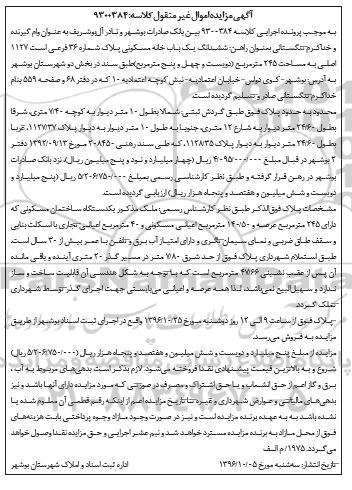 آگهی مزایده اموال غیر منقول کلاسه: ۹۳۰۰۳۸۴
به موجب پرونده اجرایی کلاسه ۹۳۰۰۳۸۴ بین بانک صادرات بوشهر و نادر آل‌بوشریف به عنوان وام گیرنده
و خداکرم تنگستانی بعنوان راهن: ششدانگ یک باب خانه مسکونی پلاک شماره ۳۶ فرعی از ۱۱۲۷
اصلی به مساحت ۲۴۵ مترمربع (دویست و چهل و پنج مترمربع) طبق سند در بخش دو شهرستان بوشهر
به آدرس: بوشهر- کوی دواس- خیابان اعتمادیه- نبش کوچه اعتمادیه ۱۰ که در دفتر ۶۸ و صفحه ۵۵۹ بنام
خداکرم تنگستانی صادر و تسلیم گردیده است.
محدود به حدود پلاک فوق طبق گردش ثبتی: شمالا بطول ۱۰ متر دیوار به کوچه ۷/۴۰ متری، شرقا
بطول ۲۴/۶۰ متر دیوار به شارع ۱۲ متری، جنوبا به طول ۱۰ متر دیوار به دیوار پلاک ۱۱۲۷/۳۷، غربا
بطول ۲۴/۶۰ متر دیوار به دیوار پلاک ۱۱۲۸/۳۵، که طی سند رهنی ۲۰۸۴۵۰ مورخ ۱۳۹۲/۰۹/۱۳ دفتر
۲ بوشهر در قبال مبلغ ۴/۰۹۵/۰۰۰/۰۰۰ ریال (چهار میلیارد و نود و پنج میلیون ریال)، نزد بانک صادرات
بوشهر در رهن قرار گرفته و طبق نظر کارشناسی رسمی بمبلغ ۵/۲۰۶/۷۵۰/۰۰۰ ریال (پنج میلیارد و
دویست و شش میلیون و هفتصد و پنجاه هزار ریال) ارزیابی گردیده است.
مشخصات پلاک فوق‌الذکر طبق نظر کارشناس رسمی: ملک مذکور یکدستگاه ساختمان مسکونی که
دارای ۲۴۵ مترمربع عرصه و ۱۴۰/۵۰ مترمربع اعیانی مسکونی و ۴۰ مترمربع اعیانی تجاری با اسکلت بنایی
و سقف طاق ضربی و نمای سیمان‌کاری و دارای امتیاز آب برق و تلفن با عمر بیش از ۳۰ سال است.
طبق استعلام شهرداری پلاک فوق از حد شرق ۷/۸۰ متر در مسیر گذر ۲۰ متری آینده و باقی مانده
آن پس از عقب نشینی ۴۷/۶۶ مترمربع است که با توجه به شکل هندسی آن قابلیت ساخت و ساز
ندارد و سهیل‌البیع نمی‌باشد، لذا همه عرصه و اعیانی می‌بایستی جهت اجرای گذر توسط شهرداری
تملک گردد.
-پلاک فوق از ساعت ۹ الی ۱۲ روز دوشنبه مورخ ۱۳۹۶/۱۰/۲۵ واقع در اجرای ثبت اسناد بوشهر از طریق
مزایده به فروش می‌رسد.
مزایده از مبلغ پنج میلیارد و دویست و شش میلیون و هفتصد و پنجاه هزار ریال (۵/۲۰۶/۷۵۰/۰۰۰ ریال)
شروع و به بالاترین قیمت پیشنهادی نقدا فروخته می‌شود. لازم بذکر است بدهی‌های مربوط به آب،
برق و گاز اعم از حق انشعاب و یا حق اشتراک و مصرف در صورتی که مورد مزایده دارای آنها باشد و نیز
بدهی‌های مالیاتی و عوارض شهرداری و غیره تا تاریخ مزایده اعم از اینکه رقم قطعی آن معلوم شده یا
نشده باشد به عهده برنده مزایده است و نیز در صورت وجود مازاد وجوه پرداختی بابت هزینه‌های
فوق از محل مازاد به برنده مزایده مسترد خواهد شد و نیم عشر اجرایی و حق مزایده نقدا وصول خواهد
می‌گردد. ۱۹۷۵/ م الف
-تاریخ انتشار: سه‌شنبه مورخ ۱۳۹۶/۱۰/۰۵ اداره ثبت اسناد و املاک شهرستان بوشهر